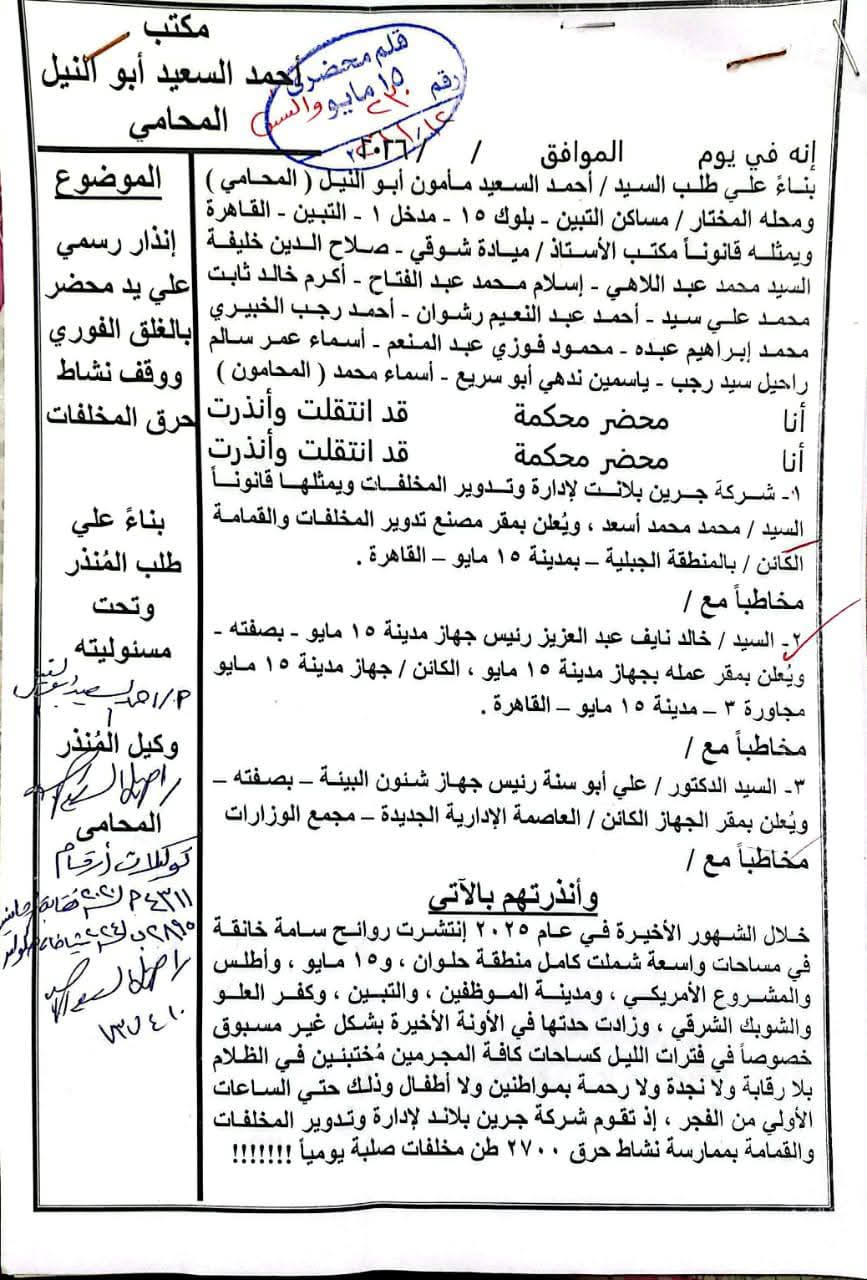 مكتب
أحمد السعيد أبو النيل
المحامي
قلم محضرى
١٥ مايو
رقم
إنه في يوم الموافق / / ٢٠٢٦
بناءً علي طلب السيد / أحمد السعيد مأمون أبو النيل ( المحامي )
ومحله المختار / مساكن التبين - بلوك ١٥ - مدخل ١ - التبين - القاهرة
ويمثله قانوناً مكتب الأستاذ / ميادة شوقي - صلاح الدين خليفة
السيد محمد عبد اللاهي - إسلام محمد عبد الفتاح - أكرم خالد ثابت
محمد علي سيد - أحمد عبد النعيم رشوان - أحمد رجب الخبيري
محمد إبراهيم عبده - محمود فوزي عبد المنعم - أسماء عمر سالم
راحيل سيد رجب - ياسمين ندهي أبو سريع - أسماء محمد ( المحامون )
أنا محضر محكمة قد انتقلت وأنذرت
أنا محضر محكمة قد انتقلت وأنذرت
١- شركة جرين بلانت لإدارة وتدوير المخلفات ويمثلها قانوناً
السيد / محمد محمد أسعد ، ويُعلن بمقر مصنع تدوير المخلفات والقمامة
الكائن / بالمنطقة الجبلية – بمدينة ١٥ مايو – القاهرة .
مخاطباً مع /
٢- السيد / خالد نايف عبد العزيز رئيس جهاز مدينة ١٥ مايو - بصفته -
ويُعلن بمقر عمله بجهاز مدينة ١٥ مايو ، الكائن / جهاز مدينة ١٥ مايو
مجاورة ٣ – مدينة ١٥ مايو – القاهرة .
مخاطباً مع /
٣- السيد الدكتور / علي أبو سنة رئيس جهاز شئون البيئة – بصفته –
ويُعلن بمقر الجهاز الكائن / العاصمة الإدارية الجديدة – مجمع الوزارات
مخاطباً مع /
وأنذرتهم بالآتي
خلال الشهور الأخيرة في عام ٢٠٢٥ إنتشرت روائح سامة خانقة
في مساحات واسعة شملت كامل منطقة حلوان ، و١٥ مايو ، وأطلس
والمشروع الأمريكي ، ومدينة الموظفين ، والتبين ، وكفر العلو
والشوبك الشرقي ، وزادت حدتها في الأونة الأخيرة بشكل غير مسبوق
خصوصاً في فترات الليل كساحات كافة المجرمين مُختبئين في الظلام
بلا رقابة ولا نجدة ولا رحمة بمواطنين ولا أطفال وذلك حتي الساعات
الأولي من الفجر ، إذ تقوم شركة جرين بلاند لإدارة وتدوير المخلفات
والقمامة بممارسة نشاط حرق ٢٧٠٠ طن مخلفات صلبة يومياً !!!!!!!
الموضوع
إنذار رسمي
علي يد محضر
بالغلق الفوري
ووقف نشاط
حرق المخلفات
بناءً علي
طلب المُنذر
وتحت
مسئوليته
وكيل المُنذر
المحامى
توكيلات أرقام